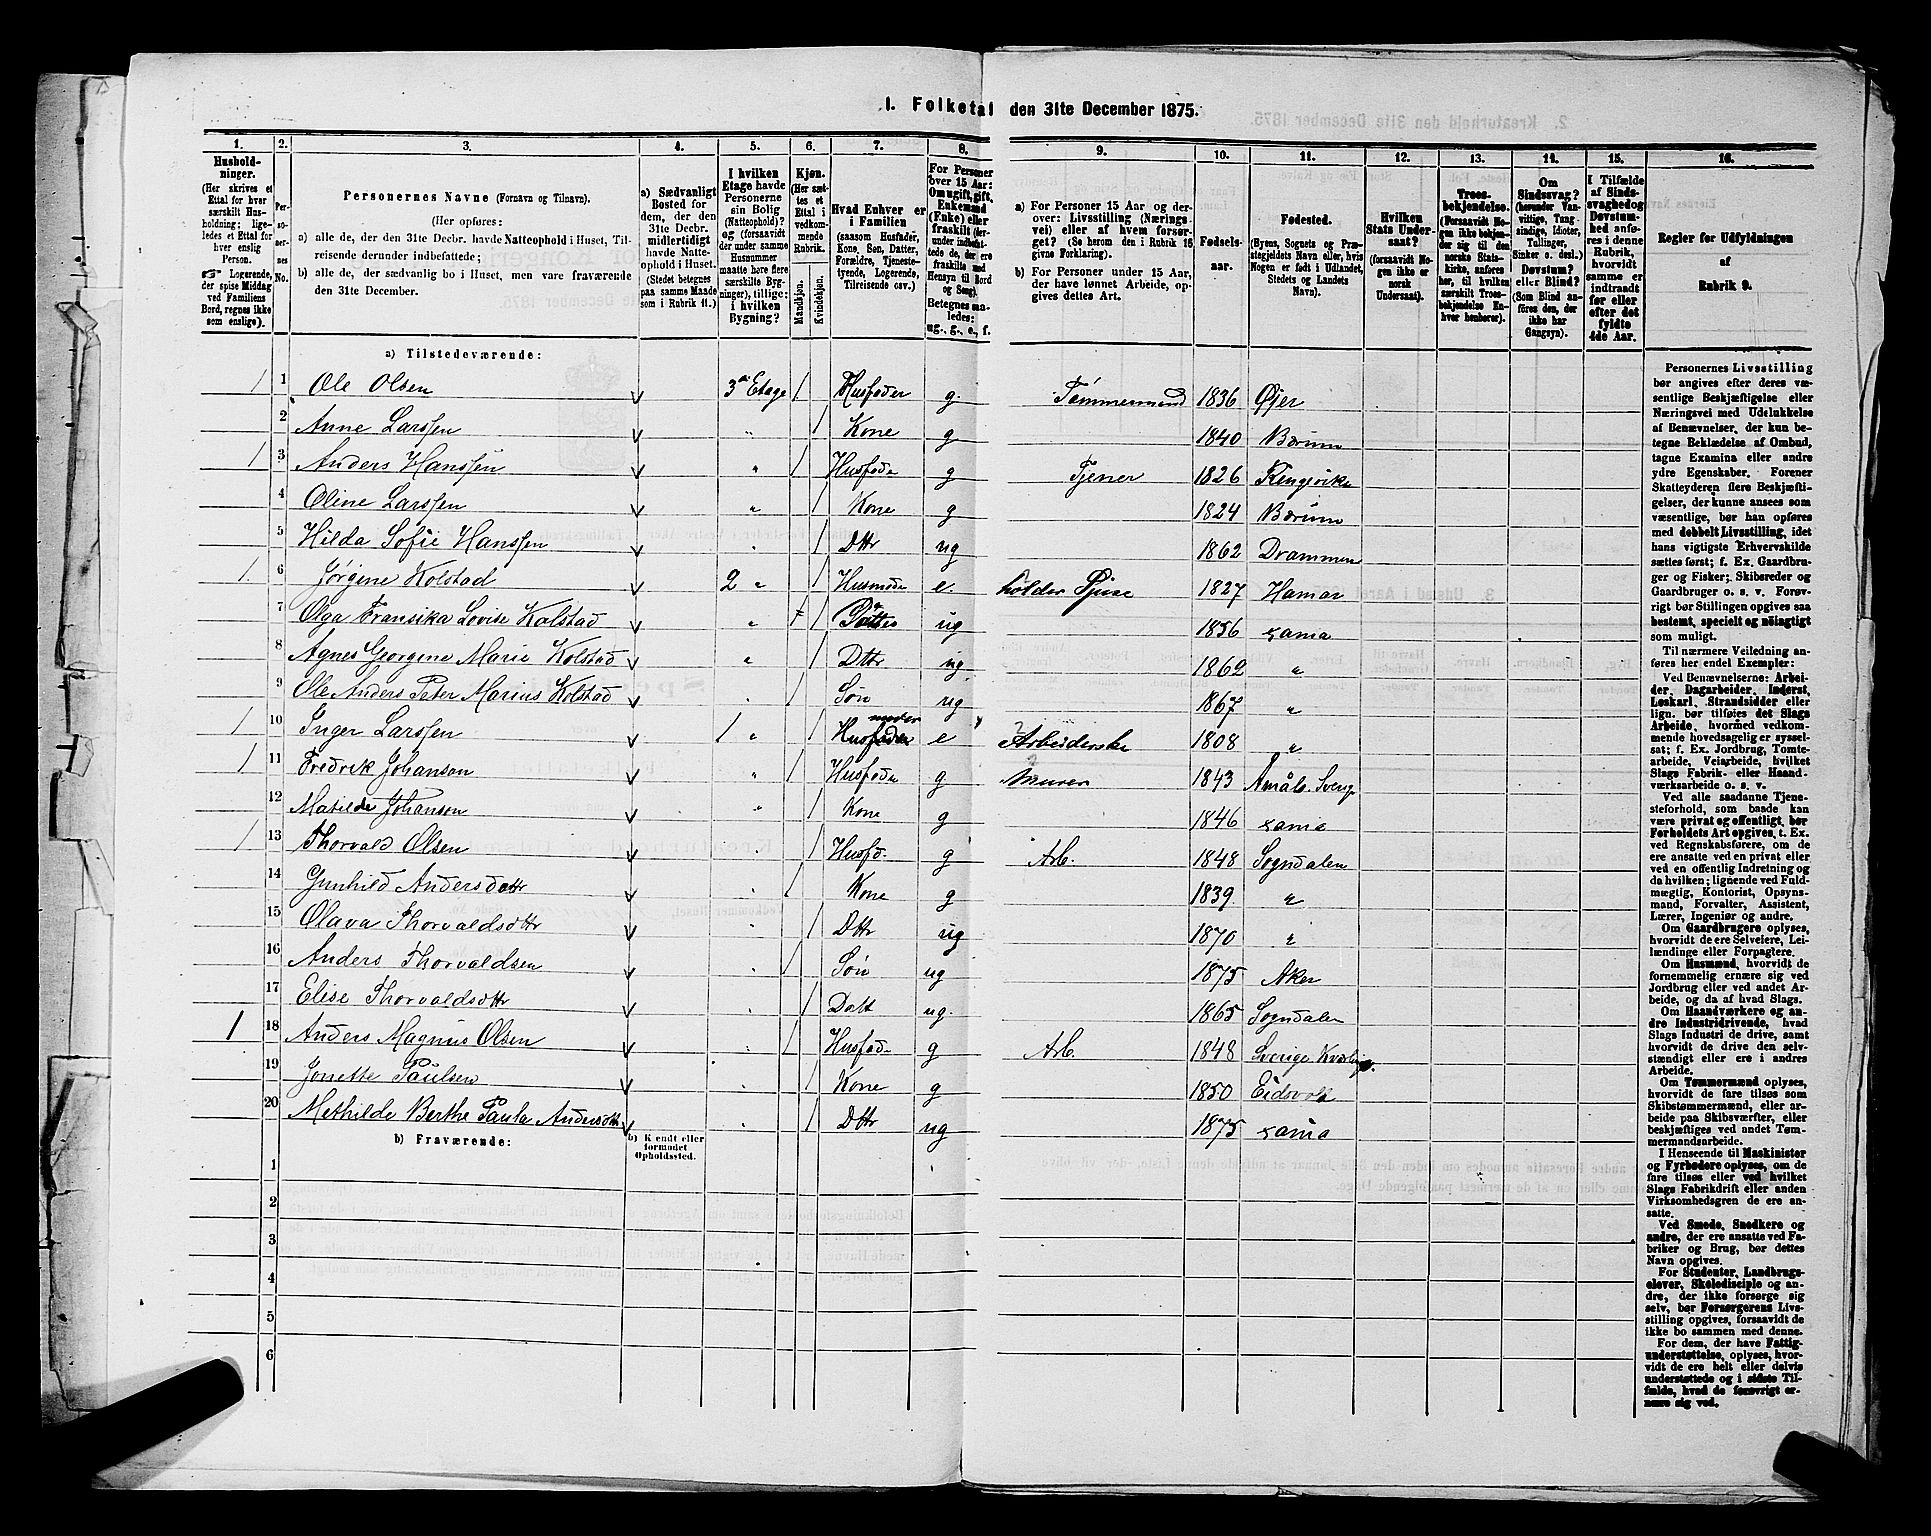 I. Folketal den 31te December 1875.
1. 2. 3. 4. 5. 6. 7. 8. 9. 10. 11. 12. 13. 14. 15. 16.
Hushold-
ninger.
(Her skrives et
Ettal for hver
særskilt Hus-
holdning; lige-
ledes et Ettal for
hver enslig
Person.
☞ Logerende,
der spise Middag
ved Familiens
Bord, regnes ikke
som enslige).
Per-
so-
ner-
nes
No.
Personernes Navne (Fornavn og Tilnavn).
(Her opføres:
a) alle de, der den 31te Decbr. havde Natteophold i Huset, Til-
reisende derunder indbefattede;
b) alle de, der sædvanlig bo i Huset, men vare fraværende
den 31te December.
a) Sædvanligt
Bosted for
dem, der den
31te Decbr.
midlertidigt
havde Natte-
ophold i Huset.
(Stedet betegnes
paa samme Maade
som i Rubrik 11.)
I hvilken
Etage havde
Personerne
sin Bolig
(Natteophold)?
og (forsaavidt
der under samme
Husnummer
maatte høre flere
særskilte Byg-
ninger), tillige:
i hvilken
Bygning?
Kjøn.
(Her sæt-
tes et
Ettal i
vedkom-
mende
Rubrik.
Mandkjøn.
Kvindekjøn.
Hvad Enhver er
i Familien
(saasom Husfader,
Kone, Søn, Datter,
Forældre, Tjeneste-
tyende, Logerende,
Tilreisende osv.).
For Personer
over 15 Aar:
Om ugift, gift,
Enkemand
(Enke) eller
fraskilt (der-
under indbefat-
tede de, der ere
fraskilte med
Hensyn til Bord
og Seng).
Betegnes saa-
ledes:
ug., g., e., f.
a) For Personer 15 Aar og der-
over: Livsstilling (Nærings-
vei) eller af hvem forsør-
get? (Se herom den i Rubrik 16
givne Forklaring).
b) For Personer under 15 Aar,
der have lønnet Arbeide, op-
gives dettes Art.
Fødsels-
aar.
Fødested.
(Byens, Sognets og Præ-
stegjeldets Navn eller, hvis
Nogen er født i Udlandet,
Stedets og Landets
Navn).
Hvilken
Stats Under-
saat?
(forsaavidt No-
gen ikke er
norsk
Undersaat).
Troes-
bekjendelse.
(Forsaavidt No-
gen ikke bekjen-
der sig til den
norske Stats-
kirke, anføres
her, til hvilken
særskilt Troes-
bekjendelse En-
hver henhører).
Om
Sindssvag?
(herunder Van-
vittige, Tung-
sindige, Idioter,
Tullinger,
Sinker o. desl.)
Døvstum?
eller Blind?
(Som Blind an-
føres den, der
ikke har
Gangsyn).
I Tilfælde
af Sinds-
svaghed og
Døvstum-
hed anfø-
res i denne
Rubrik,
hvorvidt
samme er
indtraadt
før eller
efter det
fyldte
4de Aar.
Regler for Udfyldningen
af
Rubrik 9.
a) Tilstedeværende:
1 1 Ole Olsen 3die Etage 1 Husfader g. Tømmermand 1836 Øjer
2 Anne Larssen " 1 Kone g 1840 Bærum
1 3 Anders Hanssen " 1 Husfade g Tjener 1826 Ringerike
4 Oline Larssen " 1 Kone g 1824 Bærum
5 Hilda Sofie Hanssen " 1 Dttr ug 1862 Drammen
1. 6 Jørgine Kolstad 2 " 1 Husmode e. holder Spise 1827 Hamar
7 Olga Fransika Lovise Kolstad " 1 Datter ug 1856 sama
8 Agnes Georgene Marie Kolstad " 1 Dttr ug 1862 "
9 Ole Anders Peter Marius Kolstad " 1 Søn ug 1867 "
1 10 Inger Larssen 1 " 1 Husmoder e Arbeiderske 1808 "
1 11 Fredrik Johanson " 1 Husfade g Murer 1843 Åmål. Sverige
12 Matilde Johanson " 1 Kone g 1846 sama
1 13 Thorvald Olsen 1 Husfd. g Arb. 1848 Sogndalen
14 Gunhild Andersdottr " 1 Kone g 1839. "
15 Olava Thorvaldsdttr " 1 Dttr ug 1870 "
16 Anders Thorvaldsen " 1 Søn ug 1875 Aker
17 Elise Thorvaldsdttr " 1 Datt ug. 1865 Sogndalen
1 18 Anders Magnus Olsen " 1 Husfad. g Arb. 1848 Sverige
19 Jonette Paulsen " 1 Kone g 1850 Eidsvold
20 Methilde Berthe Paula Andersdttr " 1 Dttr ug 1875 sama
b) Fraværende:
b) Kjendt eller
formodet
Opholdssted.
1
2
3
4
5
6
Personernes Livsstilling
bør angives efter deres væ-
sentlige Beskjæftigelse eller
Næringsvei med Udelukkelse
af Benævnelser, der kun be-
tegne Beklædelse af Ombud,
tagne Examina eller andre
ydre Egenskaber. Forener
Skatteyderen flere Beskjæfti-
gelser, der kunne ansees som
væsentlige, bør han opføres
med dobbelt Livsstilling, idet
hans vigtigste Erhvervskilde
sættes først; f. Ex. Gaardbru-
ger og Fisker; Skibsreder og
Gaardbruger o. s. v. Forøv-
rigt bør Stillingen opgives saa
bestemt, specielt og nøiagtigt
som muligt.
Til nærmere Veiledning an-
føres her endel Exempler:
Ved Benævnelserne: Arbei-
der, Dagarbeider, Inderst,
Løskarl, Strandsidder eller
lign. bør tilføies det Slags
Arbeide, hvormed vedkom-
mende hovedsagelig er syssel-
sat; f. Ex. Jordbrug, Tomte-
arbeide, Veiarbeide, hvilket
Slags Fabrik- eller Haand-
værksarbeide o. s. v.
Ved alle saadanne Tjene-
steforhold, som baade kan
være privat og offentligt, bør
Forholdets Art opgives, t. Ex.
ved Regnskabsførere, om de
ere ansatte ved en privat eller
ved en offentlig Indretning og
da hvilken; lignende ved Fuld-
mægtig, Kontorist, Opsyns-
mand, Forvalter, Assistent,
Lærer, Ingeniør og andre.
Om Gaardbrugere oplyses,
hvorvidt de ere Selveiere, Lei-
lændinge eller Forpagtere.
Om Husmænd, hvorvidt de
fornemmelig ernære sig ved
Jordbrug eller ved andet Ar-
beide, og da af hvad Slags.
Om Haandværkere og an-
dre Industridrivende, hvad
Slags Industri de drive, samt
hvorvidt de drive den selv-
stændigt eller ere i andres
Arbeide.
Om Tømmermænd oplyses,
hvorvidt de fare tilsøs som
Skibstømmermænd, eller ar-
beide paa Skibsværfter, eller
beskjæftiges ved andet Tøm-
mermandsarbeide.
I Henseende til Maskinister
og Fyrbødere oplyses, om de
fare tilsøs eller ved hvilket
Slags Fabrikdrift eller anden
Virksomhedsgren de ere an-
satte.
Ved Smede, Snedkere og
andre, der ere ansatte ved Fa-
briker og Brug, bør dettes
Navn opgives.
For Studenter, Landbrugs-
elever, Skoledisciple og an-
dre, der ikke forsørge sig
selv, bør Forsørgerens Livs-
stilling opgives, forsaavidt de
ikke bo sammen med denne.
For dem, der have Fattig-
understøttelse, oplyses, hvor-
vidt de ere helt eller delvis
understøttede og i sidste Til-
fælde, hvad de forøvrigt er-
nære sig ved.